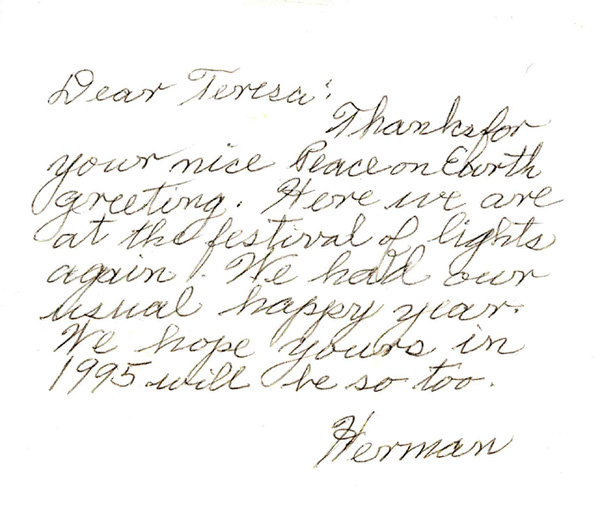 Dear Teresa:
Thanks for
your nice Peace on Earth
greeting. Here we are
at the festival of lights
again. We had our
usual happy year.
We hope yours in
1995 will be so too.
Herman